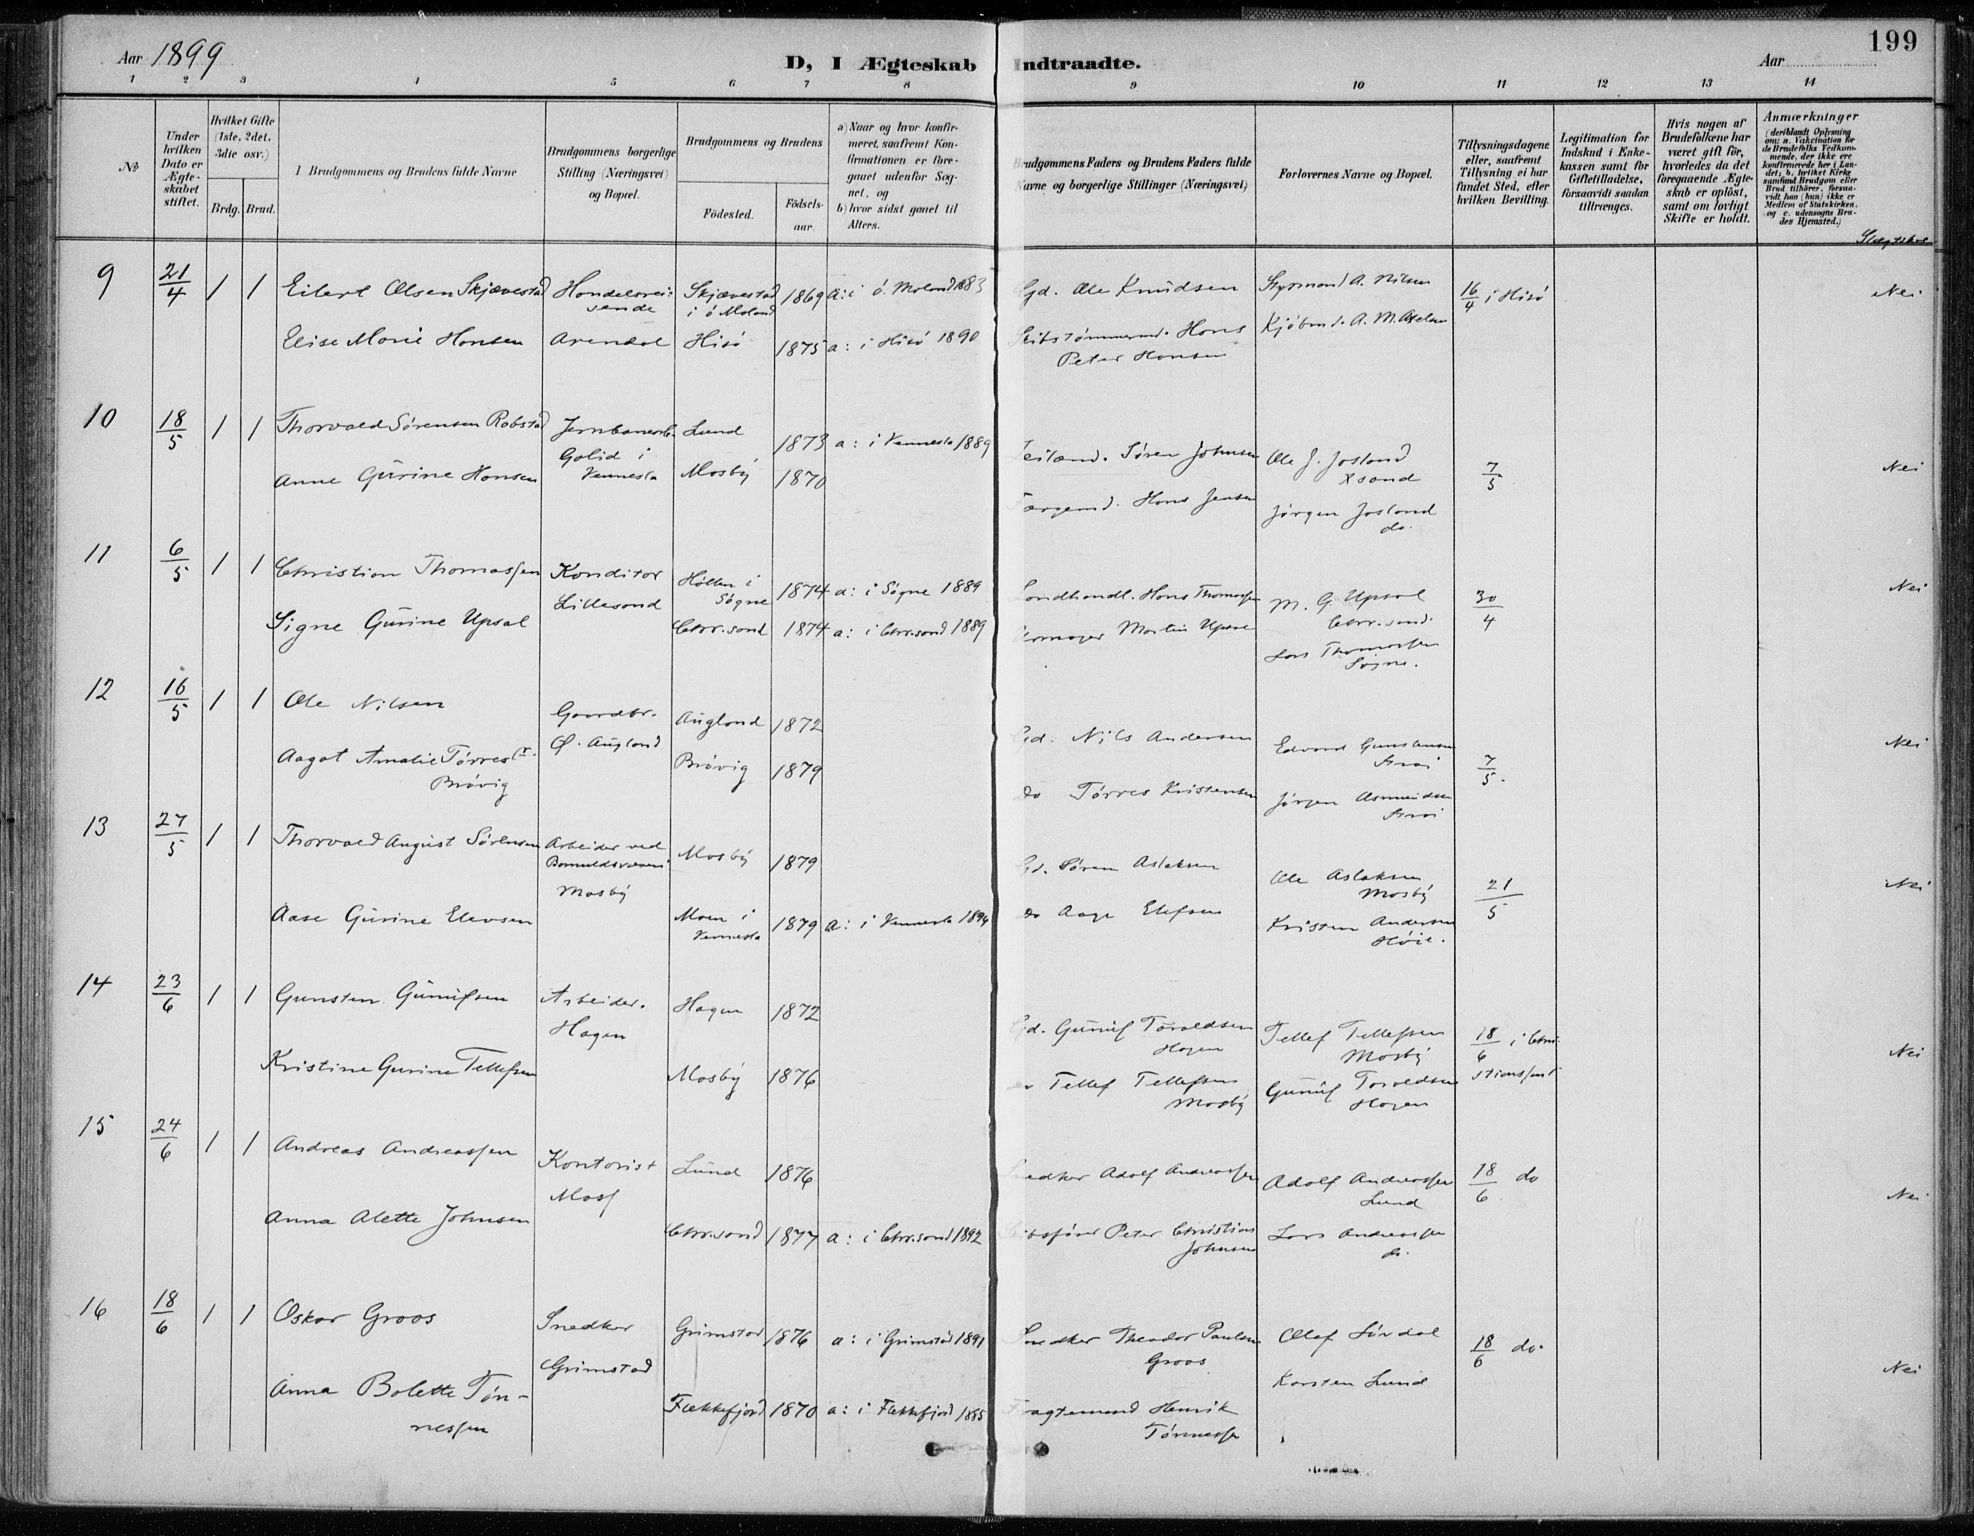 199
Aar 1899
D, I Ægteskab Indtraadte.
Aar
1 2 3 4 5 6 7 8 9 10 11 12 13 14
No
Under hvilken Dato er Ægteskabet stiftet.
Hvilket Gifte (1ste, 2det, 3die osv.)
Brdg. Brud.
Brudgommens og Brudens fulde Navne
Brudgommens borgerlige Stilling (Næringsvei) og Bopæl.
Brudgommens og Brudens
Fødested.
Fødsels-aar.
a) Naar og hvor konfirmeret, saafremt Konfirmationen er foregaaet udenfor Sognet, og
b) hvor sidst gaaet til Alters.
Brudgommens Faders og Brudens Faders fulde Navne og borgerlige Stillinger (Næringsvei)
Forlovernes Navne og Bopæl.
Tillysningsdagene eller, saafremt Tillysning ei har fundet Sted, efter hvilken Bevilling.
Legitimation for Indskud i Enkekassen samt for Giftetilladelse, forsaavidt saadan tiltrænges.
Hvis nogen af Brudefolkene har været gift før, hvorledes da det foregaaende Ægteskab er opløst, samt om lovligt Skifte er holdt.
Anmærkninger
(deriblandt Oplysning om: a. Vakcination for de Brudefolks Vedkommende, der ikke ere konfirmerede her i Landet; b. hvilket Kirkesamfund Brudgom eller Brud tilhører, forsaavidt han (hun) ikke er Medlem af Statskirken, og c. udensogns Brudes Hjemsted.)
9 21/4 1 1 Eilert Olsen Skjævestad Handelsreisende Skjævestad i ö. Moland 1869 a: i ö. Moland 1883 Gd. Ole Knudsen Styrmand A. Nilsen 16/4 i Hisö Nei
Elise Marie Hansen Arendal Hisö 1875 a: i Hisö 1890 Skibstømmermd. Hans Peter Hansen Kjöbmd. A. M.
10 18/5 1 1 Thorvald Sörensen Robstad Lund 1873 a: i Vennesla 1889 Søren Johnsen Ole J. Josland Xsand 7/5 Nei
Anne Gurine Hansen i Vennesla Mosby 1870 Hans Jensen Jørgen Josland do.
11 6/5 1 1 Christian Thomassen Konditor Hölten i Søgne 1874 a: i Søgne 1889 Landhandl. Hans Thomassen M. G. Upsal Chr.sand. 30/4 Nei
Signe Gurine Upsal Lillesand Chr.sand 1874 a: i Chr.sand 1889 Urmager Martin Upsal Lars Thomassen Søgne.
12 16/5 1 1 Ole Nilsen Gaardbr. Augland 1872 Gd. Nils Andersen Edvard Gunstensen 7/5. Nei
Aagot Amalie Tørresdtr. Brøvig Ø. Augland Brövig 1879 do Tørres Kristensen Jørgen Asmundsen
13 27/5 1 1 Thorvald August Sørensen Arbeider ved Mosby Mosby 1879 Gd. Sören Aslaksen Ole Aslaksen Mosby 21/5 Nei
Aase Gurine Elevsen Moen i Vennesla 1879 a: i Vennesla 1894 do Aage Elefsen Kristen Andersen Höie.
14 23/6 1 1 Gunsten Gunufsen Arbeider. Hagen Hagen 1872 Gd. Gunuf Toraldsen Hagen Tellef Tellefsen Mosby 18/6 i Christianssand Nei
Kristine Gurine Tellefsen Mosby 1876 do Tellef Tellefsen Mosby Gunuf Toraldsen Hagen
15 24/6 1 1 Andreas Andreassen Kontorist Moss Lund 1876 Snedker Adolf Andreassen Adolf Andreassen Lund 18/6 do Nei
Anna Alette Johnsen Chr.sand 1877 a: i Chr.sand 1892 Skibsfører Peter Christian Johnsen Lars Andreassen do.
16 18/6 1 1 Oskar Groos Snedker Grimstad 1876 a: i Grimstad 1891 Snedker Theodor Paulsen Groos Olaf Sördal 18/6 do. Nei
Anna Bolette Tönnessen Grimstad Flekkefjord 1870 a: i Flekkefjord 1885 Fragtemand Henrik Tönnessen Karsten Lund